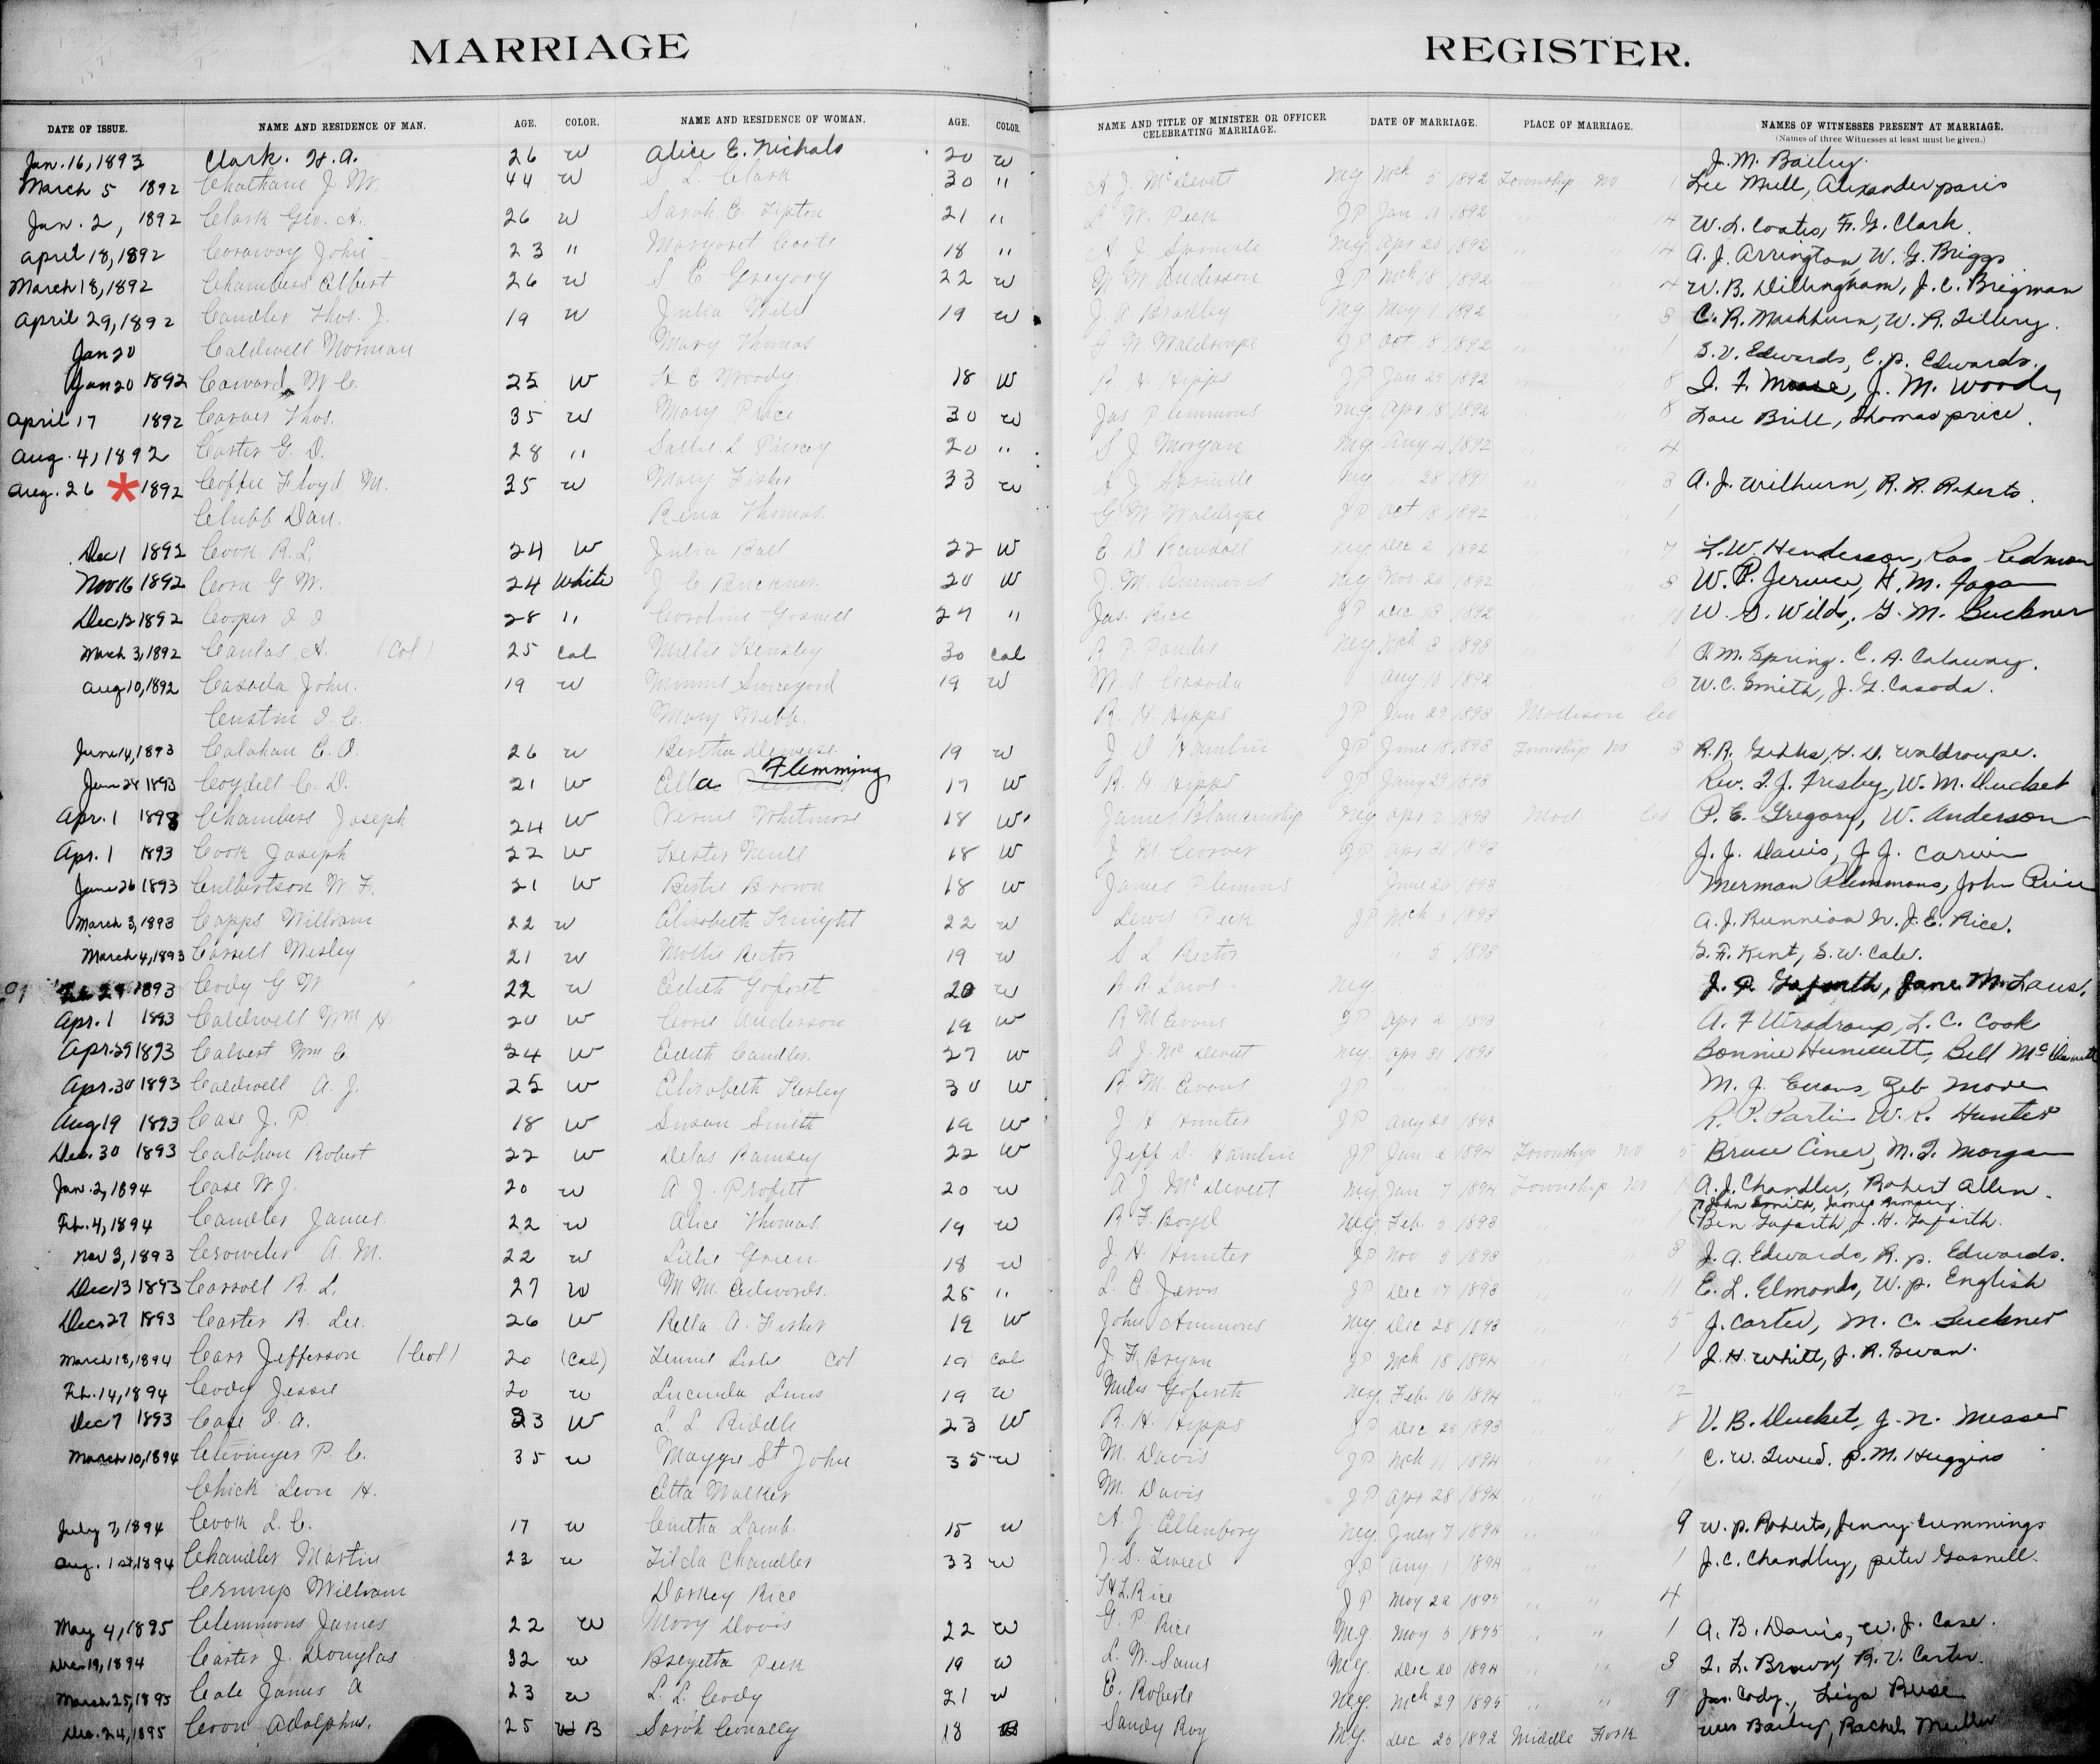 MARRIAGE REGISTER.
DATE OF ISSUE. NAME AND RESIDENCE OF MAN. AGE. COLOR. NAME AND RESIDENCE OF WOMAN. AGE. COLOR. NAME AND TITLE OF MINISTER OR OFFICER CELEBRATING MARRIAGE. DATE OF MARRIAGE. PLACE OF MARRIAGE. NAMES OF WITNESSES PRESENT AT MARRIAGE.
(Names of three Witnesses at least must be given.)
Jan. 16, 1893 Clark. H. A. 26 W Alice E. Nichols 20 W J. M. Bailey.
March 5 1892 Chatham J. W. 44 W S. L. Clark 30 " A J McDevitt Mg Mch 5 1892 Township No 1 Lee Mull, Alexander paris
Jan. 2, 1892 Clark Geo. A. 26 W Sarah E. Tipton 21 " L W. Peek JP Jan 10 1892 " " 14 W. L. Coates, F. G. Clark.
April 18, 1892 Caraway John 23 " Margaret Coats 18 " A J Sprinkle Mg Apr 20 1892 " " 14 A. J. Arrington, W. G. Briggs
March 18, 1892 Chambers Elbert 26 W S E Gregory 22 W N W Anderson JP Mch 18 1892 " " 4 W. B. Dillingham, J. C. Brigman
April 29, 1892 Candler Thos. J. 19 W Julia Wild 19 W J. A Bradley Mg. May 1 1892 " " 3 C. R. Mashburn, W. R. Tillery.
Jan 20 Caldwell Norman Mary Thomas G W Waldroupe JP Oct 18 1892 " " 1 S. V. Edwards, C. P. Edwards.
Jan 20 1892 Caward W. C. 25 W H E Woody 18 W R H Hipps JP Jan 24 1892 " " 8 J. M. Woody
April 17 1892 Carver Thos. 35 W Mary Price 30 W Jas Plemmons Mg Apr 18 1892 " " 8 Thomas price.
Aug. 4, 1892 Carter G. D. 28 " Sallie L Piercy 20 " S J Morgan Mg. Aug 4 1892 " " 4
Aug. 26 * 1892 Coffee Floyd M. 35 W Mary Fisher 33 W A J Sprinkle Mg " 28 1891 " " 3 A. J. Wilburn, R. R. Roberts.
Chubb Dan. Rena Thomas G W Waldrope JP Oct 18 1892 " " 1
Dec 1 1892 Cook R. L. 24 W Julia Ball 22 W E D Randall Mg Dec 2 1892 " " 7 L. W. Henderson, Ras Redmon
Nov 16 1892 Corn G. W. 24 White J C Buckner 20 W J. M. Ammons Mg Nov. 20 1892 " " 3 H. M.
Dec 12 1892 Cooper J J 28 " Caroline Gosnell 27 " Jas. Rice JP Dec 13 1892 " " 10 W. S. Wilds, G. M. Buckner
March 3, 1892 A. (Col) 25 Col Hensley 30 Col R P Mg. Mch 3 1893 " " 1 P. M. Spring. C. A. Calaway.
Aug 10, 1892 Casada John. 19 W Minnie Swicegood 19 W M. A. Casada Aug 10 1892 " " 6 W. C. Smith, J. G. Casoda.
Custin J. C. Mary Webb. R. H. Hipps JP Jan 29 1893 Madison Co
June 14, 1893 Calahan C. D. 26 W Bertha 19 W J D Hamlin JP June 18 1893 Township No 3 R. R. Gibbs, H. D. Waldroupe.
Jan 28 1893 Cogdill C. D. 21 W Ella Flemming 17 W R. H Hipps JP Jany 29 1893 Rev. T. J. Fresby, W. M. Ducket
Apr. 1 1893 Chambers Joseph 24 W Whitmore 18 W James Blankinship Mg Apr 2 1893 Mad. Co P. E. Gregory, W. Anderson
Apr. 1 1893 Cook Joseph 22 W Hester Mull 18 W J M JP Apr 31 1893 J. J. Davis, J. J.
June 26 1893 Culbertson W. F. 21 W Bertie Brown 18 W James Plemons June 26 1893 Merman Plemmons, John Price
March 3, 1893 Capps William 22 W Elizabeth Knight 22 W Lewis Peek JP Mch 5 1893 A. J. Runnion Jr. J. E. Rice.
March 4, 1893 Carsell Wesley 21 W Mollie Rector 19 W S L Rector " 5 1893 S. F. Kent, S. W. Cale.
1893 Cody G W 22 W Edith Goforth 20 W A. A. Laws Mg
Apr. 1 1893 Caldwell Wm H 20 W Anderson 19 W R M Evans JP Apr 2 1893 L. C. Cook
Apr. 29 1893 Calvert Wm C. 24 W Edith Candler 27 W A J. McDevitt Mg. Apr 30 1893 Bonnie Hunicutt, Bell
Apr. 30 1893 Caldwell A. J. 25 W Elizabeth 30 W R M. Evans JP M. J. Evans, Zeb Moore
Aug 19 1893 Case J. P. 18 W Susan Smith 19 W J H Hunter JP Aug 20 1893 R. P. Partin W. R. Hunter
Dec. 30 1893 Calahan Robert 22 W Delas Ramsey 22 W Jeff D. Hamlin JP Jan 2 1894 Township No 5 M. T. Morgan
Jan. 2, 1894 Case W. J. 20 W A J. Profitt 20 W A J McDevitt Mg Jan 7 1894 Township No 1 A. J. Chandler, Robert Allen.
John Smith, James Ramsey
Feb. 4, 1894 Candler James 22 W Alice Thomas 19 W R F. Boyd Mg. Feb. 5 1893 " 1 Ben Goforth, J. H. Goforth.
Nov 3, 1893 A. M. 22 W Lillie Green 18 W J. H. Hunter JP Nov 3 1893 " 3 J. A. Edwards, R. p. Edwards.
Dec 13 1893 Carroll R. L. 27 W M M. Edwards. 25 " L E Jarvis JP Dec 17 1893 " 11 E. L. Elmonds, W. p. English
Dec 27 1893 Carter R. Lee. 26 W Rella A. Fisher 19 W John Ammons Mg. Dec 28 1893 " " 5 J. Carter, M. C. Buckner
March 18, 1894 Carr Jefferson (Col) 20 (Col) Lisle Col 19 Col J F. Bryan JP Mch 18 1894 " " 1 J. H. White, J. R. Swan.
Feb. 14, 1894 Cody Jessie 20 W Lucinda 19 W Miles Goforth Mg. Feb. 16 1894 " 12
Dec 7 1893 Case J. A. 23 W L L Riddle 23 W R. H. Hipps JP Dec 20 1893 " " 8 V. B. Ducket, J. N. Messer
March 10, 1894 Clevinger P. C. 35 W Maggie St John 35 W M. Davis JP Mch 11 1894 " " 1 C. W. Tweed. P. M. Huggins
Chick Leon H. Etta Walker M. Davis JP Apr 28 1894 " " 1
July 7, 1894 Cook L. C. 17 W Cintha Lamb. 15 W A. J. Ellenborg Mg. July 7 1894 " " 9 W. P. Roberts, Jenny Cummings
Aug. 1st, 1894 Chandler Martin 23 W Tilda Chandler 33 W J. S. Tweed JP Aug 1 1894 " " 1 J. C. Chandley, peter Gosnell.
William Darkey Rice H L Rice JP May 22 1895 " " 4
May 4, 1895 Clemmons James 22 W Mary Davis 22 W G. P. Rice M.g. May 5 1895 " " 1 A. B. Davis, W. J. Case.
Dec. 19, 1894 Carter J. Douglas 32 W Peek 19 W L. W. Sams Mg. Dec 20 1894 " " 3 T. L. Brown, R. V. Carter.
March 25, 1895 Cale James A 23 W L. L. Cody 21 W E. Roberts Mg. Mch 29 1895 " " 9 Jas. Cody.,
Dec. 24, 1895 Coon Adolphus. 25 B Sarah Conally 18 B Sandy Ray M.g. Dec 26 1892 Middle Fork Wes Bailey, Rachel Miller